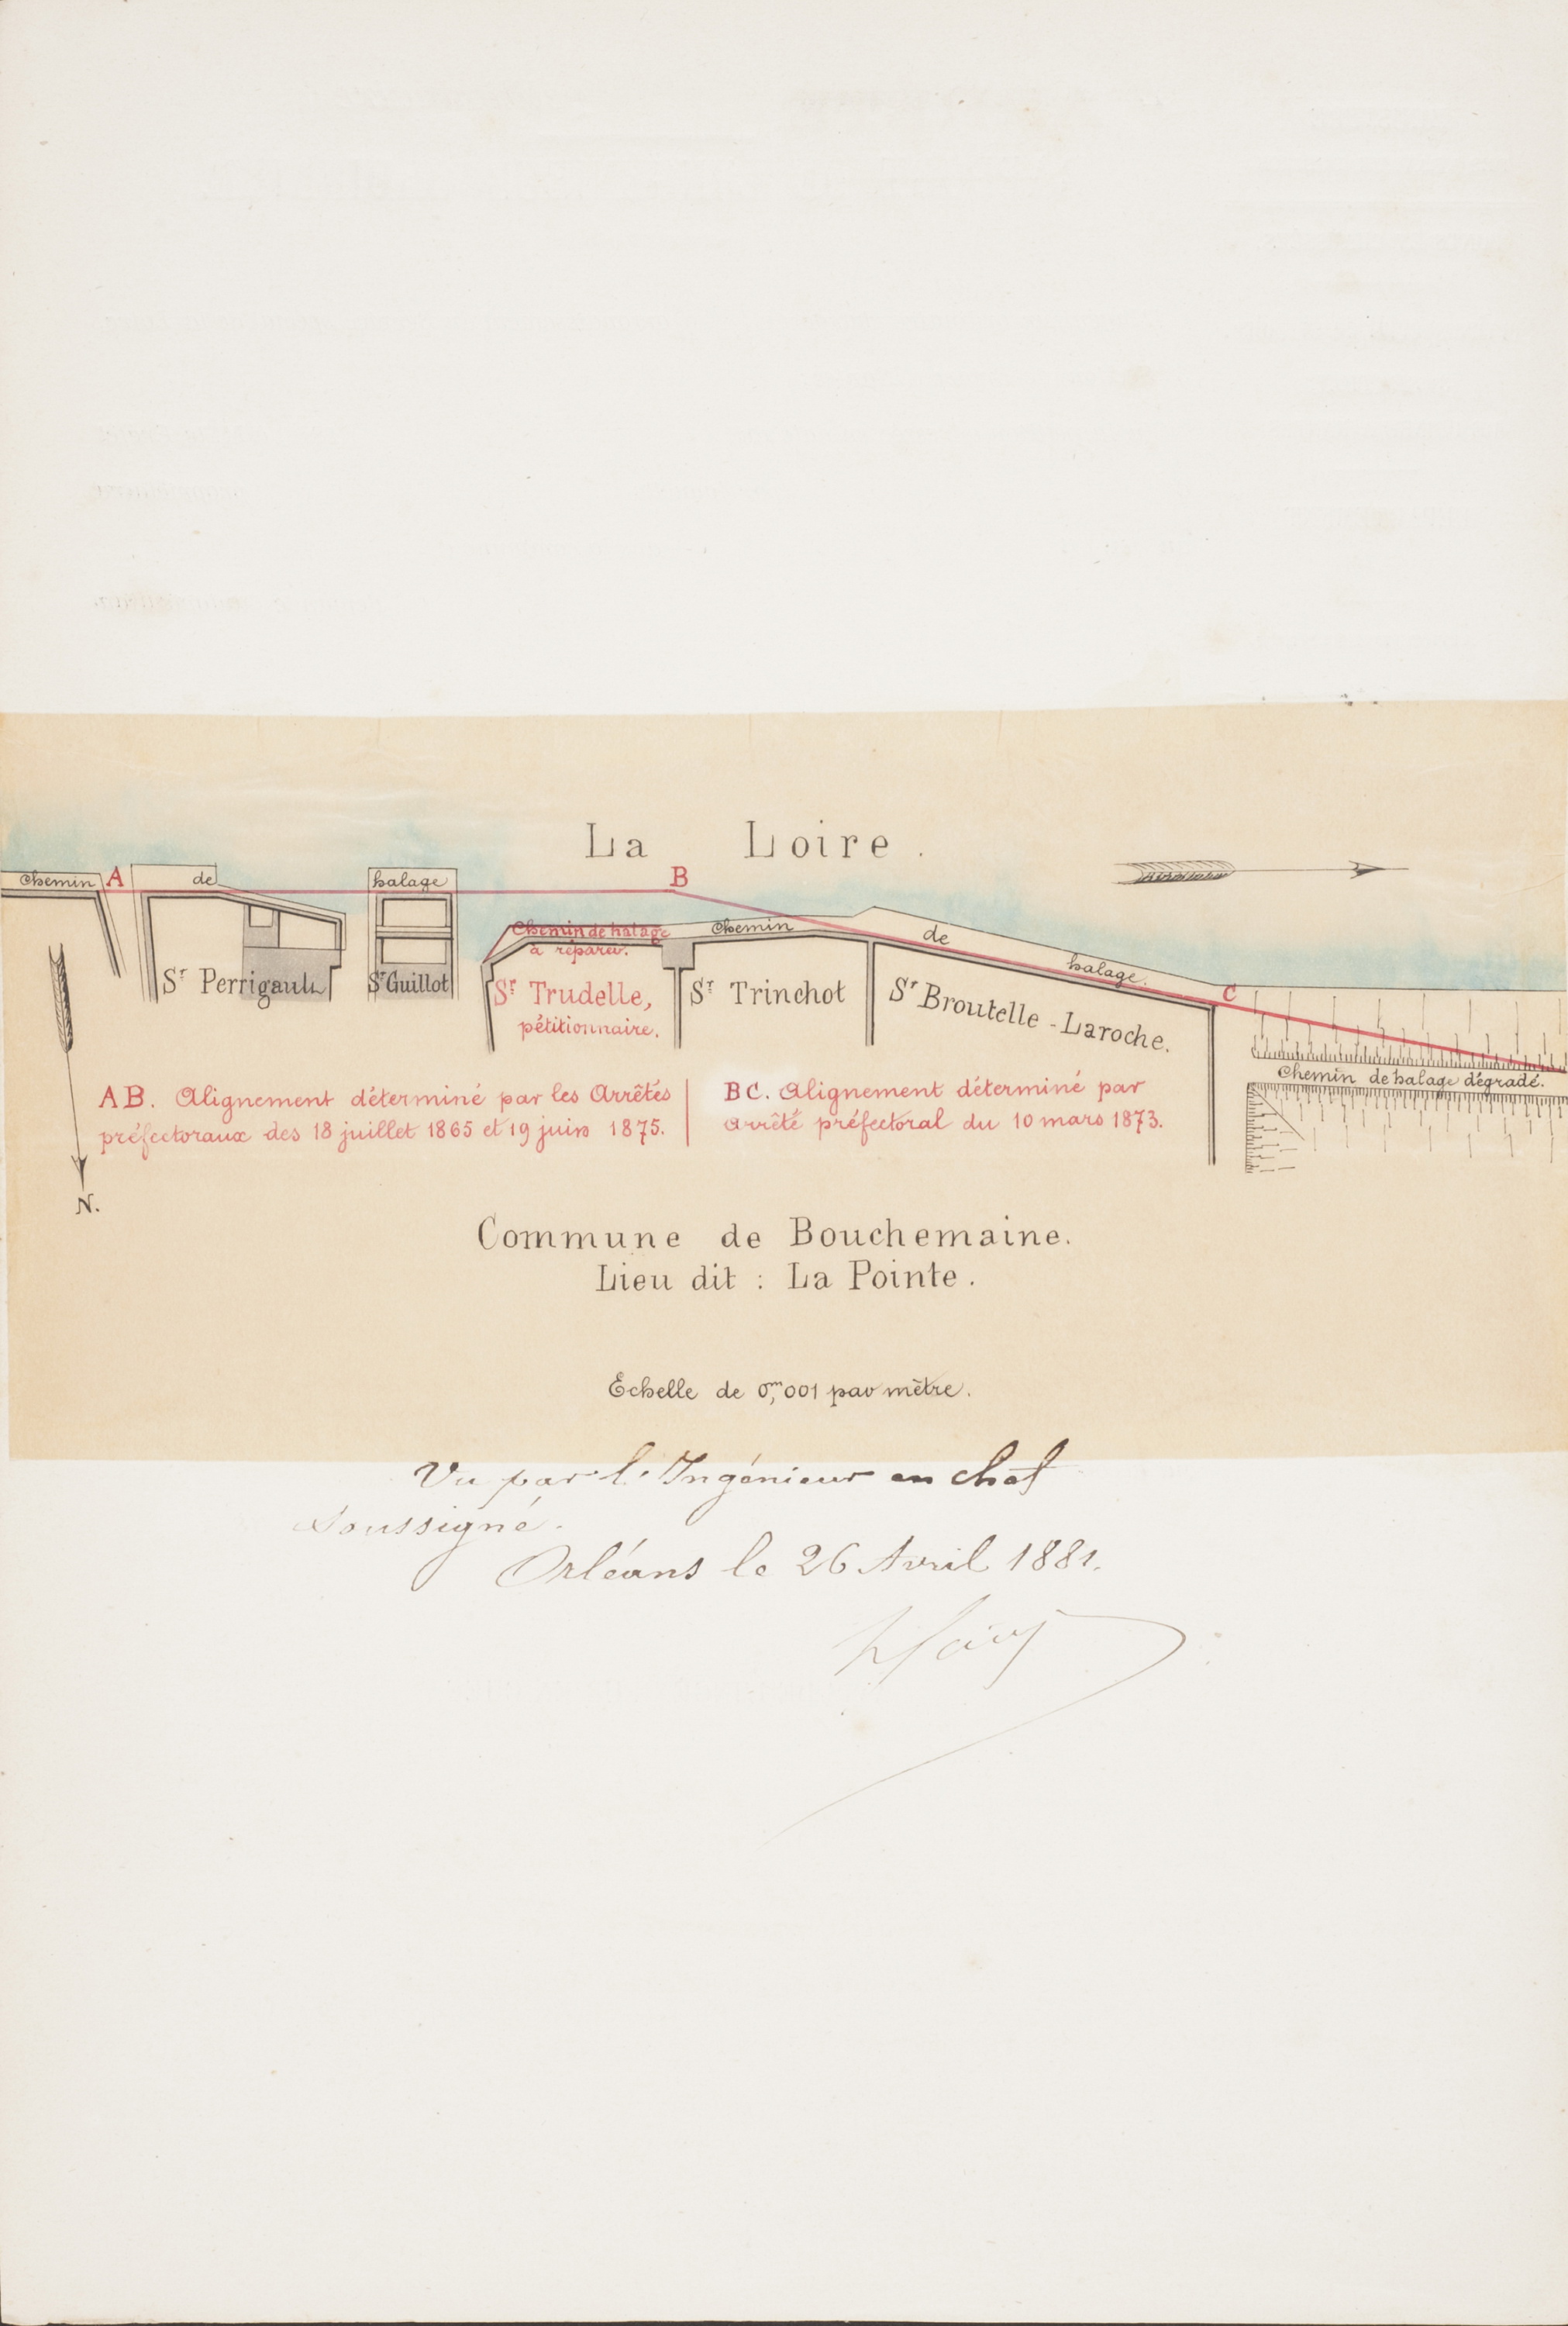 La Loire.
Chemin A de halage B
Chemin de halage
à réparer.
Chemin de halage. C
Sr Perrigault
Sr Guillot
Sr Trudelle,
pétitionnaire.
Sr Trinchot
Sr Broutelle-Laroche.
Chemin de halage dégradé.
AB. Alignement déterminé par les Arrêtés
préfectoraux des 18 juillet 1865 et 19 juin 1875.
BC. Alignement déterminé par
arrêté préfectoral du 10 mars 1873.
N.
Commune de Bouchemaine.
Lieu dit : La Pointe.
Echelle de 0m,001 par mètre.
Vu par l'Ingénieur en chef
soussigné.
Orléans le 26 Avril 1881.